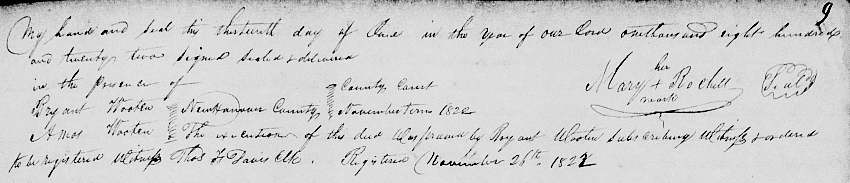 9
My hand and seal this thirteenth day of June in the Year of our Lord onethousand eight hundred
and twenty two Signed Sealed & delivered
in the presence of County Court her
Bryant Wooten New Hanover County November term 1822 Mary + Rochell Seal
Amos Wooten The execution of this deed was proved by Bryant Wooten Subscribing Witness & ordered mark
to be registered Witness Thos F Davis Clk. Registered November 26th. 1822